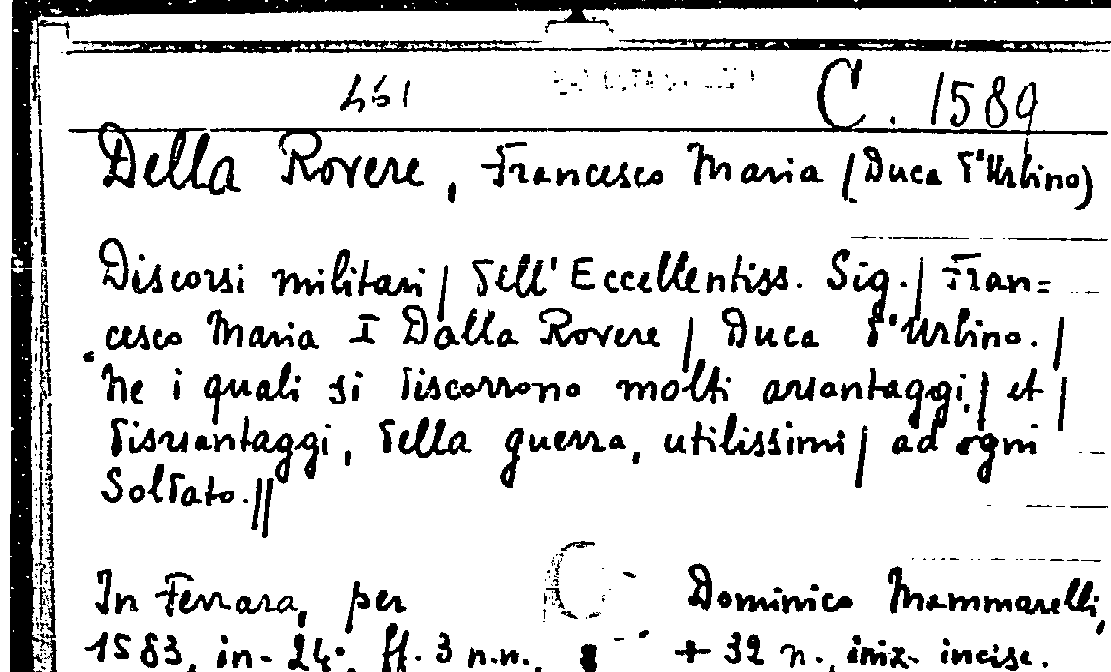 461 C. 1589
Della Rovere, Francesco Maria (Duca d'Urbino)
Discorsi militari | dell' Eccellentiss. Sig. | Fran=
cesco Maria I Dalla Rovere | Duca d'Urbino. |
Ne i quali si discorrono molti avantaggi, | et |
disvantaggi, della guerra, utilissimi | ad ogni
Soldato. ||
In Ferrara, per Dominico Mammarelli,
1583, in-24°, ff. 3 n.n., + 32 n., iniz. incise.